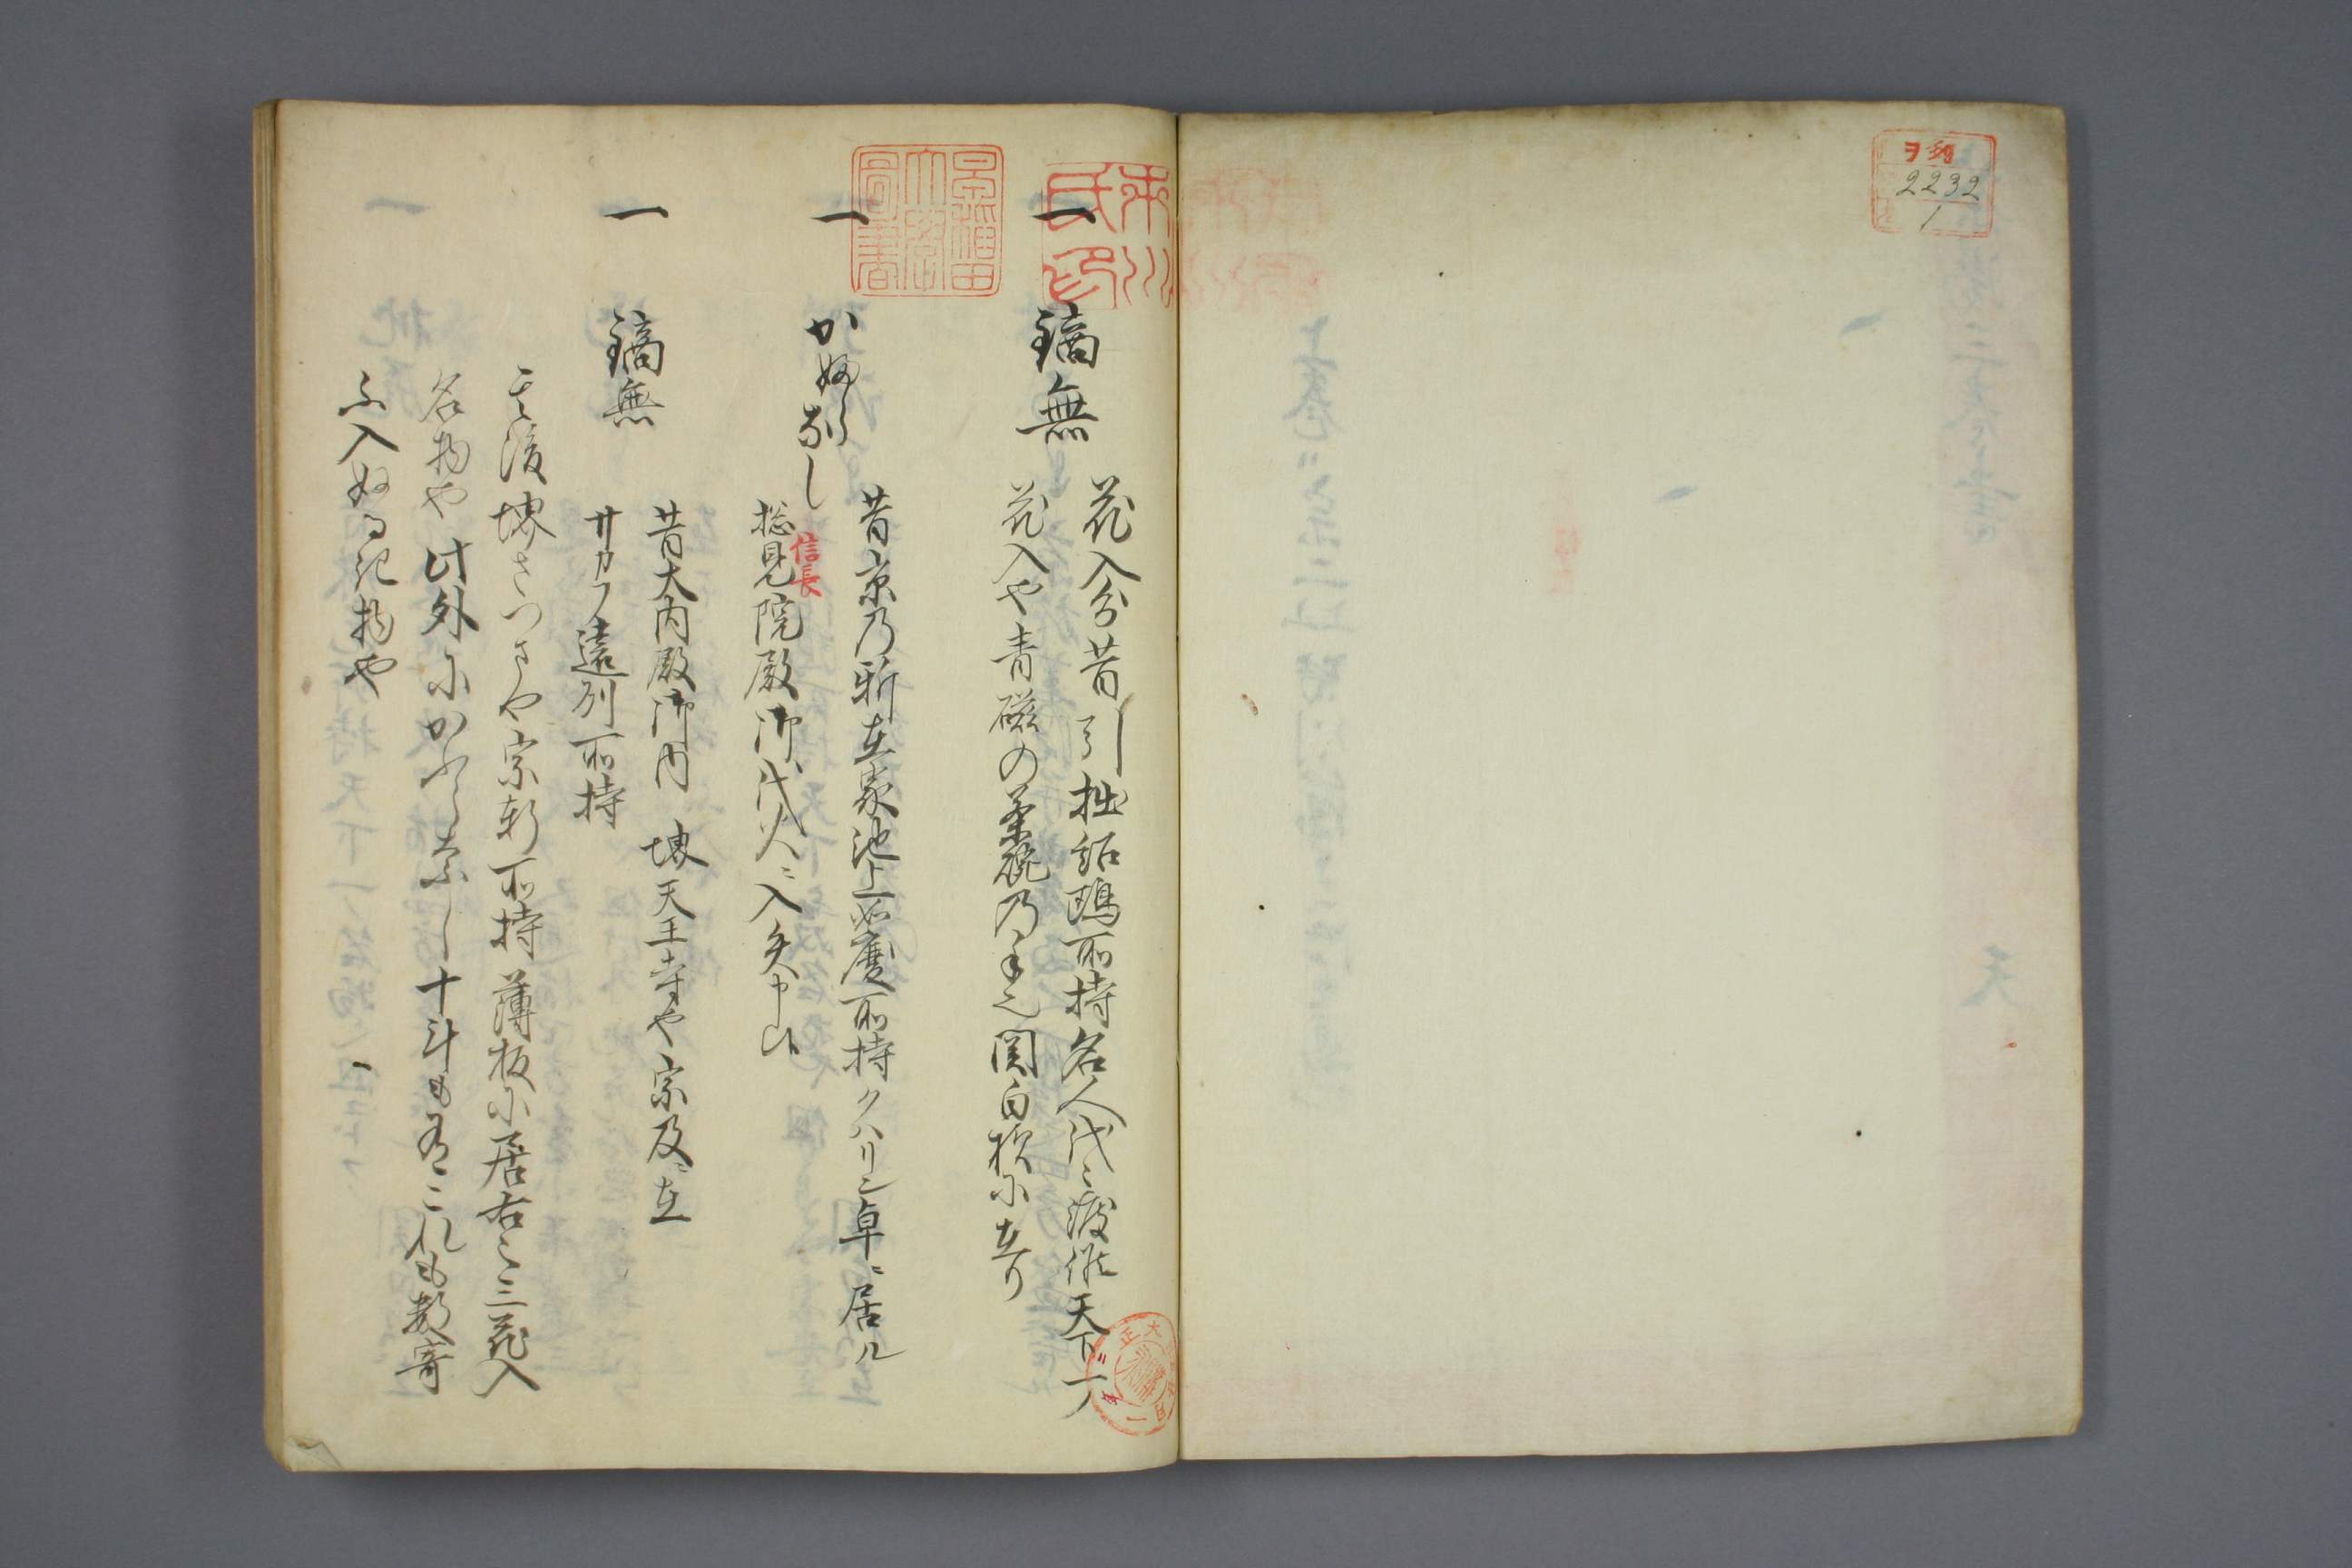 ヲ列
2232
1
一 鏑無
花入分昔引拙紹鴎所持名人代々渡候天下一ノ
花入や青磁の茶碗乃手也関白様に在り
一 かぶらなし
昔京乃新在家池上如慶所持クハリシ卓ニ居ル
信長
惣見院殿御代火ニ入失申候
一 鏑無
昔大内殿御内 堺天王寺や宗及ニ在
甘カフ遠列所持
其後堺さつまや宗忻所持 薄板に居右之三花入
名物や此外にかぶらなし十斗も有これも数寄
に入ぬる花物や